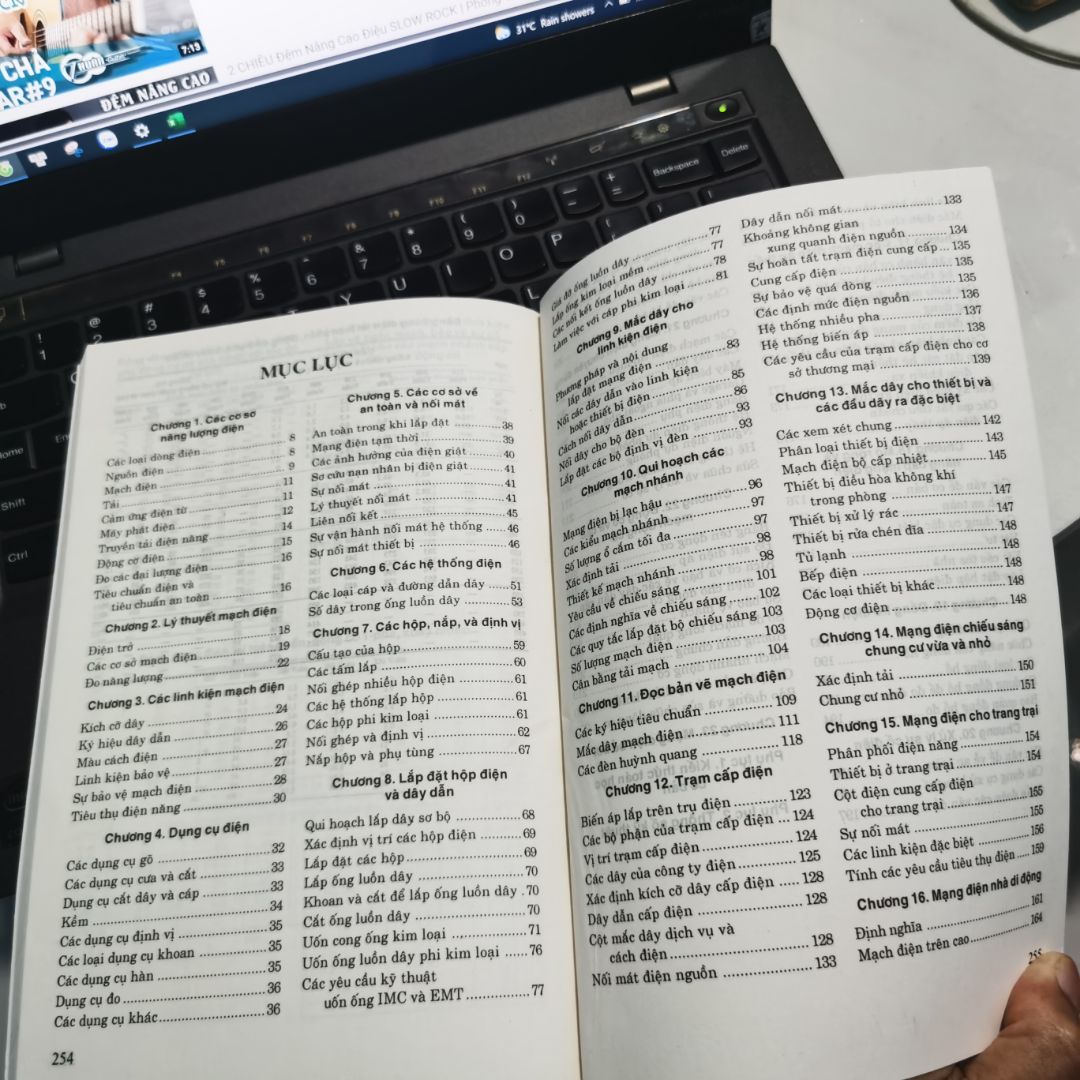 CHA
AR#9
7:13
ĐỆM NÂNG CAO
2 CHIÊU Đệm Nâng Cao Điệu SLOW ROCK | Phong
31°C Rain showers
Backspace
Delete
Home
Shift
Ctrl
MỤC LỤC
Chương 1. Các cơ sở
năng lượng điện
Các loại dòng điện 8
Nguồn điện 8
Mạch điện 9
Tải 11
Cảm ứng điện từ 11
Máy phát điện 12
Truyền tải điện năng 14
Động cơ điện 15
Đo các đại lượng điện 16
Tiêu chuẩn điện và
tiêu chuẩn an toàn 16
Chương 2. Lý thuyết mạch điện
Điện trở 18
Các cơ sở mạch điện 19
Đo năng lượng 22
Chương 3. Các linh kiện mạch điện
Kích cỡ dây 24
Ký hiệu dây dẫn 26
Màu cách điện 27
Linh kiện bảo vệ 27
Sự bảo vệ mạch điện 28
Tiêu thụ điện năng 30
Chương 4. Dụng cụ điện
Các dụng cụ gõ 32
Các dụng cụ cưa và cắt 33
Dụng cụ cắt dây và cáp 33
Kềm 34
Các dụng cụ định vị 35
Các loại dụng cụ khoan 35
Các dụng cụ hàn 35
Dụng cụ đo 36
Các dụng cụ khác 36
254
Chương 5. Các cơ sở về
an toàn và nối mát
An toàn trong khi lắp đặt 38
Mạng điện tạm thời 39
Các ảnh hưởng của điện giật 40
Sơ cứu nạn nhân bị điện giật 41
Sự nối mát 41
Lý thuyết nối mát 41
Liên nối kết 45
Sự vận hành nối mát hệ thống 46
Sự nối mát thiết bị 46
Chương 6. Các hệ thống điện
Các loại cáp và đường dẫn dây 51
Số dây trong ống luồn dây 53
Chương 7. Các hộp, nắp, và định vị
Cấu tạo của hộp 59
Các tấm lắp 60
Nối ghép nhiều hộp điện 61
Các hệ thống lắp hộp 61
Các hộp phi kim loại 61
Nối ghép và định vị 62
Nắp hộp và phụ tùng 67
Chương 8. Lắp đặt hộp điện
và dây dẫn
Qui hoạch lắp dây sơ bộ 68
Xác định vị trí các hộp điện 69
Lắp đặt các hộp 69
Lắp ống luồn dây 70
Khoan và cắt để lắp ống luồn dây 70
Cắt ống luồn dây 70
Uốn cong ống kim loại 71
Uốn ống luồn dây phi kim loại 76
Các yêu cầu kỹ thuật
uốn ống IMC và EMT 77
Giá đỡ ống luồn dây 77
Lắp ống kim loại mềm 77
Các nối kết ống luồn dây 78
Làm việc với cáp phi kim loại 81
Chương 9. Mắc dây cho
linh kiện điện
Phương pháp và nội dung
lắp đặt mạng điện 83
Nối các dây dẫn vào linh kiện
hoặc thiết bị điện 85
Cách nối dây dẫn 86
Nối dây cho bộ đèn 93
Lắp đặt các bộ định vị đèn 93
Chương 10. Qui hoạch các
mạch nhánh
Mạng điện bị lạc hậu 96
Các kiểu mạch nhánh 97
Số lượng ổ cắm tối đa 97
Xác định tải 98
Thiết kế mạch nhánh 98
Yêu cầu về chiếu sáng 101
Các định nghĩa về chiếu sáng 102
Các quy tắc lắp đặt bộ chiếu sáng 103
Số lượng mạch điện 103
Cân bằng tải mạch 104
Chương 11. Đọc bản vẽ mạch điện
Các ký hiệu tiêu chuẩn 109
Mắc dây mạch điện 111
Các đèn huỳnh quang 118
Chương 12. Trạm cấp điện
Biến áp lắp trên trụ điện 123
Các bộ phận của trạm cấp điện 124
Vị trí trạm cấp điện 124
Các dây của công ty điện 125
Xác định kích cỡ dây cấp điện 128
Dây dẫn cấp điện 128
Cột mắc dây dịch vụ và
cách điện 128
Nối mát điện nguồn 133
Dây dẫn nối mát 133
Khoảng không gian
xung quanh điện nguồn 134
Sự hoàn tất trạm điện cung cấp 135
Cung cấp điện 135
Sự bảo vệ quá dòng 135
Các định mức điện nguồn 136
Hệ thống nhiều pha 137
Hệ thống biến áp 138
Các yêu cầu của trạm cấp điện cho cơ
sở thương mại 139
Chương 13. Mắc dây cho thiết bị và
các đầu dây ra đặc biệt
Các xem xét chung 142
Phân loại thiết bị điện 143
Mạch điện bộ cấp nhiệt 145
Thiết bị điều hòa không khí
trong phòng 147
Thiết bị xử lý rác 147
Thiết bị rửa chén dĩa 148
Tủ lạnh 148
Bếp điện 148
Các loại thiết bị khác 148
Động cơ điện 148
Chương 14. Mạng điện chiếu sáng
chung cư vừa và nhỏ
Xác định tải 150
Chung cư nhỏ 151
Chương 15. Mạng điện cho trang trại
Phân phối điện năng 154
Thiết bị ở trang trại 154
Cột điện cung cấp điện
cho trang trại 155
Sự nối mát 155
Các linh kiện đặc biệt 156
Tính các yêu cầu tiêu thụ điện 159
Chương 16. Mạng điện nhà di động
Định nghĩa 161
Mạch điện trên cao 164
255